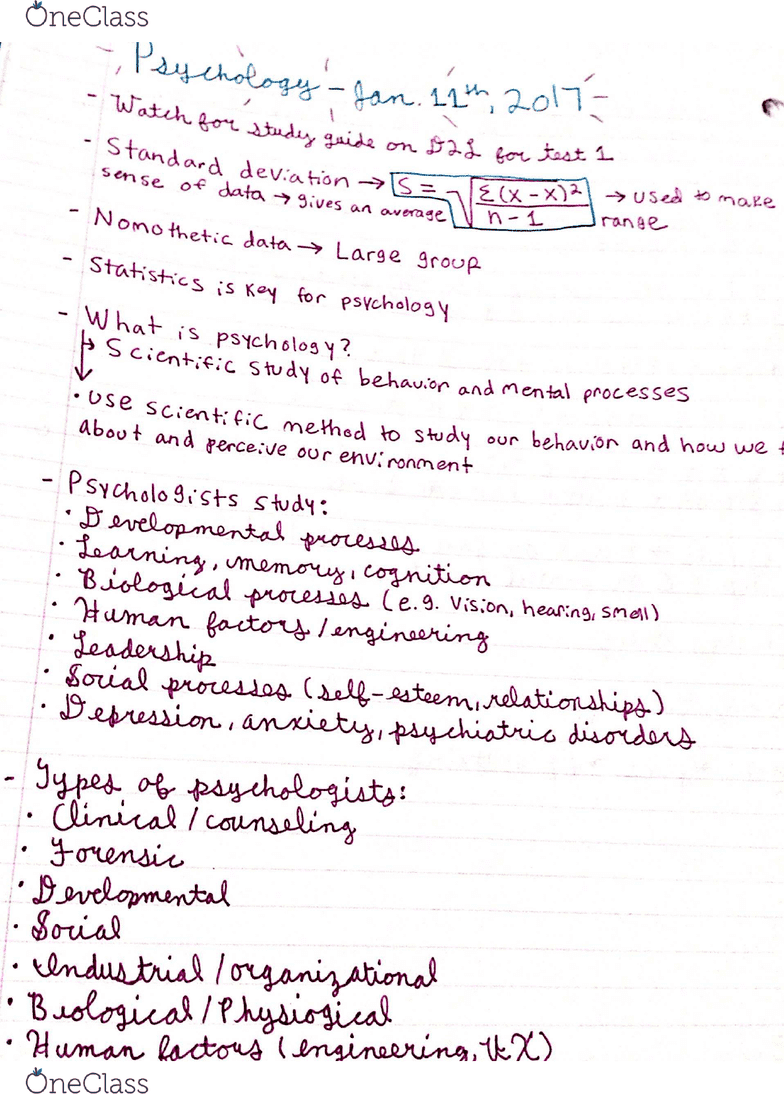 OneClass
Psychology - Jan. 11th, 2017
- Watch for study guide on D2L for test 1
- Standard deviation → S = √ Σ(x - x)² / n - 1 → used to make
sense of data → gives an average range
- Nomothetic data → Large group
- Statistics is key for psychology
- What is psychology?
↳ Scientific study of behavior and mental processes
• use scientific method to study our behavior and how we
about and perceive our environment
- Psychologists study:
• Developmental processes
• Learning, memory, cognition
• Biological processes (e.g. vision, hearing, smell)
• Human factors/engineering
• Leadership
• Social processes (self-esteem, relationships)
• Depression, anxiety, psychiatric disorders
- Types of psychologists:
• Clinical/counseling
• Forensic
• Developmental
• Social
• Industrial/organizational
• Biological/Physiogical
• Human factors (engineering, UX)
OneClass